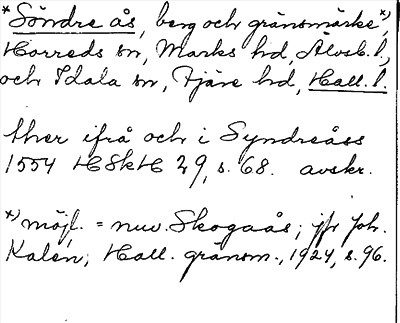 * Söndre ås, berg och gränsmärke x),
Horreds sn, Marks hd, Älvsb. l,
och Idala sn, Fjäre hd, Hall. l.
ther ifrå och i Syndreåss
1554 HSkH 29, s. 68. avskr.
x) möjl. = nuv. Skogaås; jfr Joh.
Kalén, Hall. gränsm., 1924, s. 96.